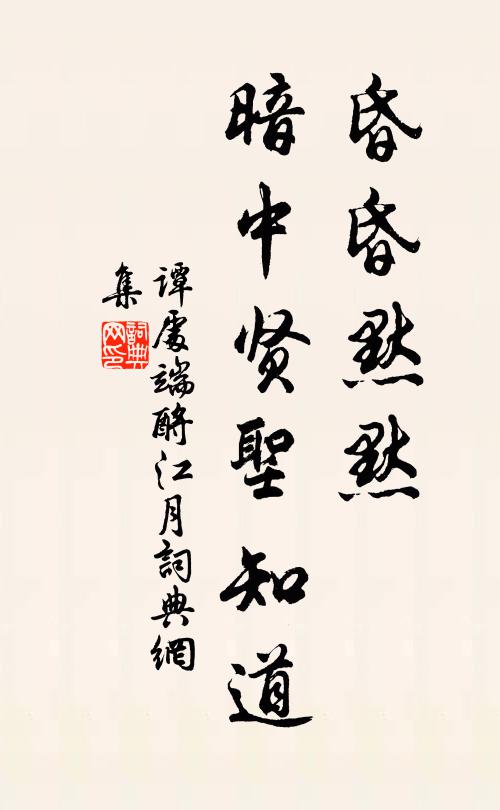 昏昏默默
暗中贤聖知道
谭處端酹江月詞典網
集
詞典
网印